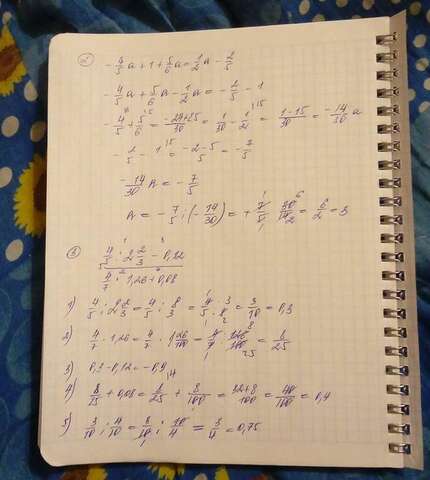 2)
-4/5 a + 1 + 5/6 a = 1/2 a - 2/5
-4/5 a + 5/6 a - 1/2 a = -2/5 - 1
-4/5 + 5/6 = (-24+25)/30 = 1/30 - 1/2 = (1-15)/30 = -14/30 a
-2/5 - 1 = (-2-5)/5 = -7/5
-14/30 a = -7/5
a = -7/5 : (-14/30) = + 7/5 · 30/14 = 6/2 = 3
3)
(4/5 : 2 2/3 - 0,12) / (4/7 · 1,26 + 0,08)
1) 4/5 : 2 2/3 = 4/5 : 8/3 = (4 · 3)/(5 · 8) = 3/10 = 0,3
2) 4/7 · 1,26 = 4/7 · 1 26/100 = 4/7 · 126/100 = 8/25
3) 0,3 - 0,12 = -0,4
4) 8/25 + 0,08 = 8/25 + 8/100 = (32+8)/100 = 40/100 = 0,4
5) 3/10 : 4/10 = 3/10 : 10/4 = 3/4 = 0,75